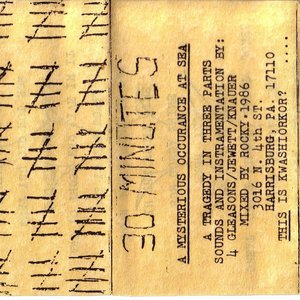 30 MINUTES
A MYSTERIOUS OCCURANCE AT SEA
A TRAGEDY IN THREE PARTS
SOUNDS AND INSTRAMENTATION BY:
4 GLEASONS/JEWETT/KNAUER
MIXED BY ROCKY·1986
3016 N. 4th ST.
HARRISBURG, PA. 17110
THIS IS KWASHIORKOR? ....